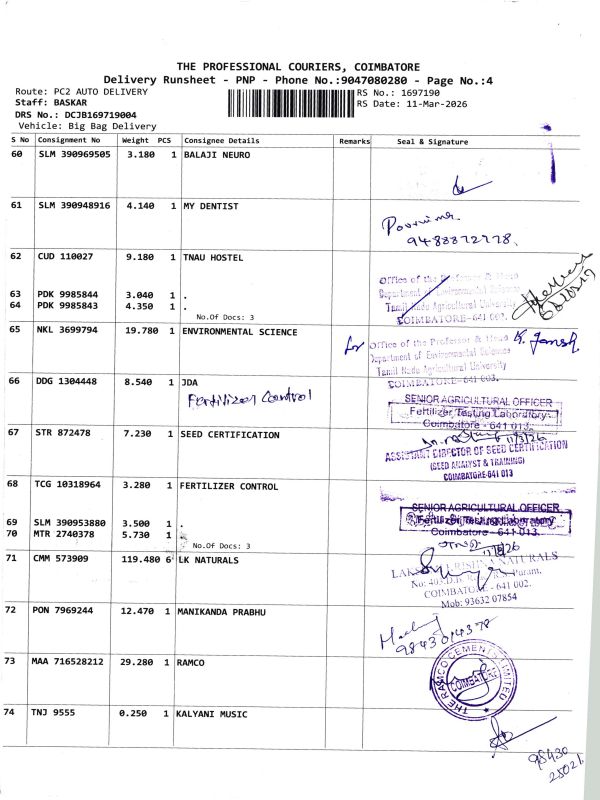 THE PROFESSIONAL COURIERS, COIMBATORE
Delivery Runsheet - PNP - Phone No.:9047080280 - Page No.:4
Route: PC2 AUTO DELIVERY
RS No.: 1697190
Staff: BASKAR
RS Date: 11-Mar-2026
DRS No.: DCJB169719004
Vehicle: Big Bag Delivery
S No Consignment No Weight PCS Consignee Details Remarks Seal & Signature
60 SLM 390969505 3.180 1 BALAJI NEURO
61 SLM 390948916 4.140 1 MY DENTIST
Poornima.
9488872778.
62 CUD 110027 9.180 1 TNAU HOSTEL
Office of the Professor & Head
Department of Environmental Sciences
Tamil Nadu Agricultural University
COIMBATORE-641 003.
63 PDK 9985844 3.040 1 .
64 PDK 9985843 4.350 1 .
No.Of Docs: 3
65 NKL 3699794 19.780 1 ENVIRONMENTAL SCIENCE
for
K. Ganesh
Office of the Professor & Head
Department of Environmental Sciences
Tamil Nadu Agricultural University
COIMBATORE-641 003.
66 DDG 1304448 8.540 1 JDA
Fertilizer Control
SENIOR AGRICULTURAL OFFICER
Fertilizer Testing Laboratory
Coimbatore - 641 013.
67 STR 872478 7.230 1 SEED CERTIFICATION
11/3/26
ASSISTANT DIRECTOR OF SEED CERTIFICATION
(SEED ANALYST & TRAINING)
COIMBATORE-641 013
68 TCG 10318964 3.280 1 FERTILIZER CONTROL
SENIOR AGRICULTURAL OFFICER
Fertilizer Testing Laboratory
Coimbatore - 641 013.
69 SLM 390953880 3.500 1 .
70 MTR 2740378 5.730 1 .
No.Of Docs: 3
11/3/26
71 CMM 573909 119.480 6 LK NATURALS
LAKSHMI KRISHNA NATURALS
COIMBATORE - 641 002.
Mob: 93632 07854
72 PON 7969244 12.470 1 MANIKANDA PRABHU
9843014378
73 MAA 716528212 29.280 1 RAMCO
THE RAMCO CEMENTS LIMITED
COIMBATORE
74 TNJ 9555 0.250 1 KALYANI MUSIC
98430
25021